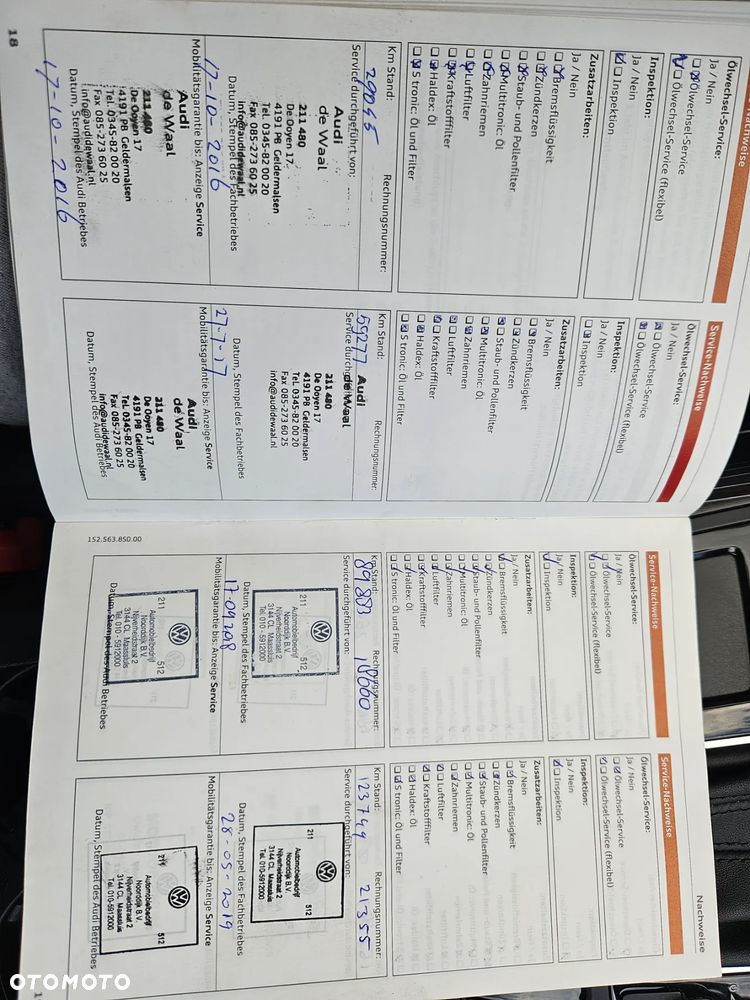 Nachweise
Ölwechsel-Service:
Ja / Nein
Ölwechsel-Service
Ölwechsel-Service (flexibel)
Inspektion:
Ja / Nein
Inspektion
Zusatzarbeiten:
Ja / Nein
Bremsflüssigkeit
Zündkerzen
Staub- und Pollenfilter
Multitronic: Öl
Zahnriemen
Luftfilter
Kraftstofffilter
Haldex: Öl
S tronic: Öl und Filter
Km Stand:
Rechnungsnummer:
29045
Service durchgeführt von:
Audi
de Waal
211 480
De Ooyen 17
4191 PB Geldermalsen
Tel. 0345-82 00 20
Fax 085-273 60 25
info@audidewaal.nl
Datum, Stempel des Fachbetriebes
17-10-2016
Mobilitätsgarantie bis: Anzeige Service
Audi
de Waal
211 480
De Ooyen 17
4191 PB Geldermalsen
Tel. 0345-82 00 20
Fax 085-273 60 25
info@audidewaal.nl
Datum, Stempel des Audi Betriebes
17-10-2016
18
Service-Nachweise
Ölwechsel-Service:
Ja / Nein
Ölwechsel-Service
Ölwechsel-Service (flexibel)
Inspektion:
Ja / Nein
Inspektion
Zusatzarbeiten:
Ja / Nein
Bremsflüssigkeit
Zündkerzen
Staub- und Pollenfilter
Multitronic: Öl
Zahnriemen
Luftfilter
Kraftstofffilter
Haldex: Öl
S tronic: Öl und Filter
Km Stand:
Rechnungsnummer:
59277
Service durchgeführt von:
Audi
de Waal
211 480
De Ooyen 17
4191 PB Geldermalsen
Tel. 0345-82 00 20
Fax 085-273 60 25
info@audidewaal.nl
Datum, Stempel des Fachbetriebes
27-7-17
Mobilitätsgarantie bis: Anzeige Service
Audi
de Waal
211 480
De Ooyen 17
4191 PB Geldermalsen
Tel. 0345-82 00 20
Fax 085-273 60 25
info@audidewaal.nl
Datum, Stempel des Audi Betriebes
152.563.850.00
Service-Nachweise
Ölwechsel-Service:
Ja / Nein
Ölwechsel-Service
Ölwechsel-Service (flexibel)
Inspektion:
Ja / Nein
Inspektion
Zusatzarbeiten:
Ja / Nein
Bremsflüssigkeit
Zündkerzen
Staub- und Pollenfilter
Multitronic: Öl
Zahnriemen
Luftfilter
Kraftstofffilter
Haldex: Öl
S tronic: Öl und Filter
Km Stand:
Rechnungsnummer:
89883
Service durchgeführt von:
211
512
Automobielbedrijf
Noordijk B.V.
Nijverheidstraat 2
3144 CL Maassluis
Tel. 010-5912000
Datum, Stempel des Fachbetriebes
Mobilitätsgarantie bis: Anzeige Service
211
512
Automobielbedrijf
Noordijk B.V.
Nijverheidstraat 2
3144 CL Maassluis
Tel. 010-5912000
Datum, Stempel des Audi Betriebes
Nachweise
Service-Nachweise
Ölwechsel-Service:
Ja / Nein
Ölwechsel-Service
Ölwechsel-Service (flexibel)
Inspektion:
Ja / Nein
Inspektion
Zusatzarbeiten:
Ja / Nein
Bremsflüssigkeit
Zündkerzen
Staub- und Pollenfilter
Multitronic: Öl
Zahnriemen
Luftfilter
Kraftstofffilter
Haldex: Öl
S tronic: Öl und Filter
Km Stand:
Rechnungsnummer:
123749 21355
Service durchgeführt von:
211
512
Automobielbedrijf
Noordijk B.V.
Nijverheidstraat 2
3144 CL Maassluis
Tel. 010-5912000
Datum, Stempel des Fachbetriebes
28-05-2019
Mobilitätsgarantie bis: Anzeige Service
211
512
Automobielbedrijf
Noordijk B.V.
Nijverheidstraat 2
3144 CL Maassluis
Tel. 010-5912000
Datum, Stempel des Audi Betriebes
OTOMOTO